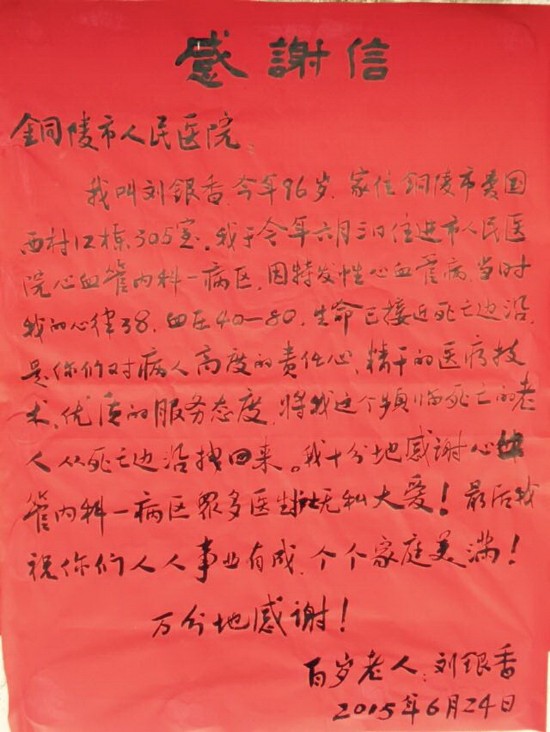 感謝信
銅陵市人民医院
我叫刘银香,今年96岁,家住銅陵市爱国
西村12栋305室。我于今年六月三日住进市人民医
院心血管内科一病区,因特发性心血管病,当时
我的心律38,血压40-80,生命已接近死亡边沿,
是你们对病人高度的责任心,精干的医疗技
术,优质的服务态度,将我这个频临死亡的老
人从死亡边沿找回来。我十分地感谢心血
管内科一病区众多医生 无私大爱!最后我
祝你们人人事业有成,个个家庭美满!
万分地感谢!
百岁老人:刘银香
2015年6月24日